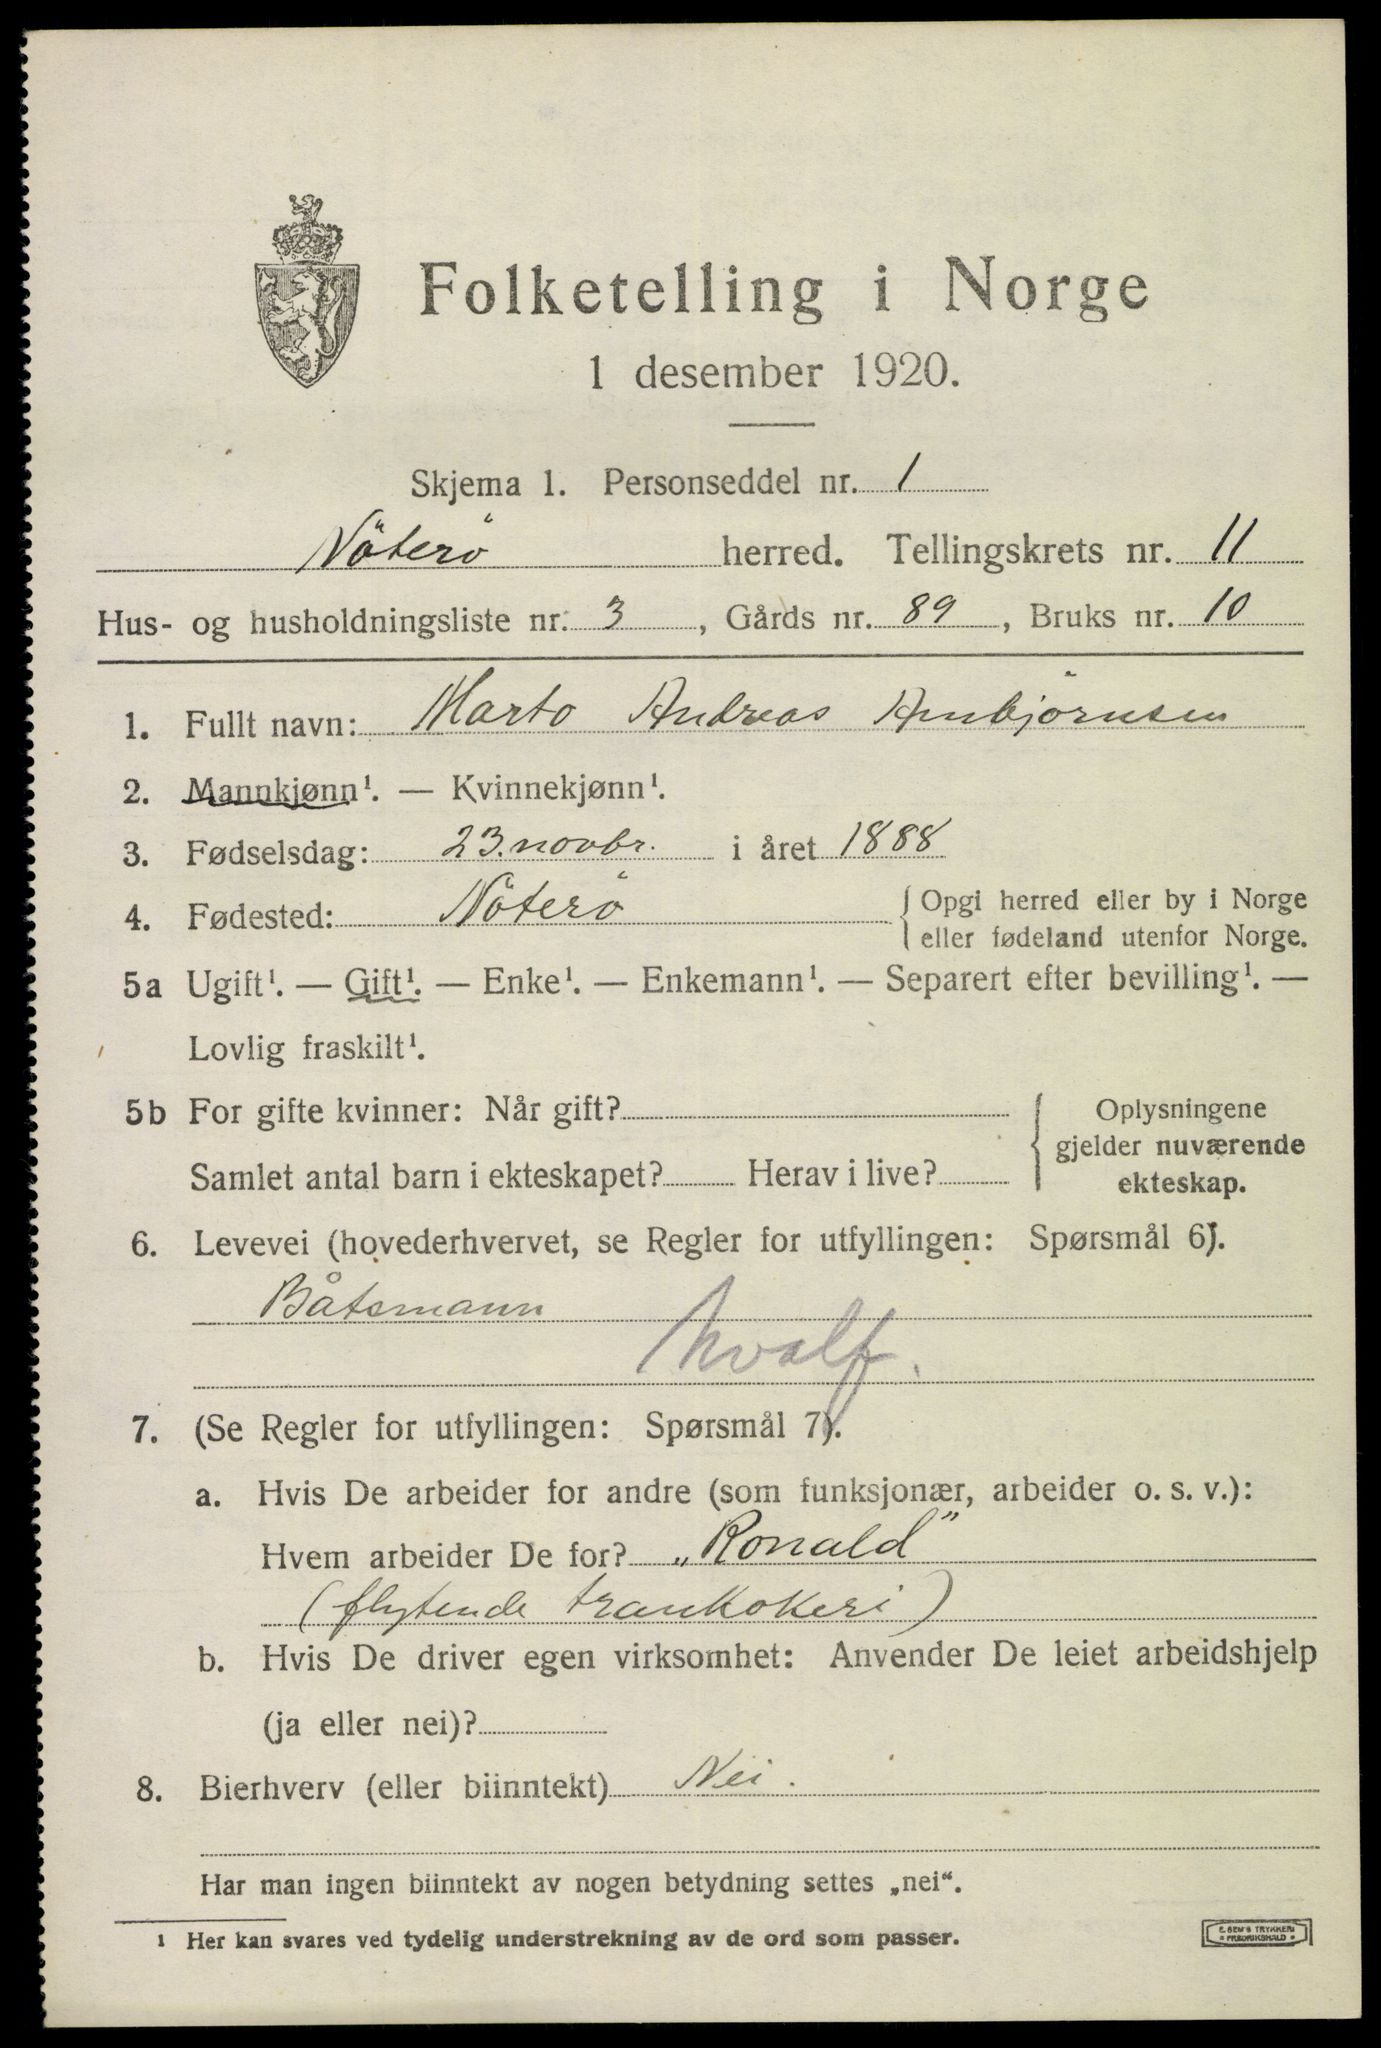 Folketelling i Norge
1 desember 1920.
Skjema 1. Personseddel nr. 1
Nöterö herred. Tellingskrets nr. 11
Hus- og husholdningsliste nr. 3, Gårds nr. 89, Bruks nr. 10
1. Fullt navn: Marto Andreas Arnbjörnsen
2. Mannkjønn¹. — Kvinnekjønn¹.
3. Fødselsdag: 23. novbr. i året 1888
4. Fødested: Nöterö { Opgi herred eller by i Norge
eller fødeland utenfor Norge.
5a Ugift¹. — Gift¹. — Enke¹. — Enkemann¹. — Separert efter bevilling¹. —
Lovlig fraskilt¹.
5b For gifte kvinner: Når gift? { Oplysningene
gjelder nuværende
Samlet antal barn i ekteskapet? Herav i live? ekteskap.
6. Levevei (hovederhvervet, se Regler for utfyllingen: Spørsmål 6).
Båtsmann
hvalf.
7. (Se Regler for utfyllingen: Spørsmål 7).
a. Hvis De arbeider for andre (som funksjonær, arbeider o. s. v.):
Hvem arbeider De for? „Ronald"
(flytende trankokeri)
b. Hvis De driver egen virksomhet: Anvender De leiet arbeidshjelp
(ja eller nei)?
8. Bierhverv (eller biinntekt) Nei.
Har man ingen biinntekt av nogen betydning settes „nei“.
¹ Her kan svares ved tydelig understrekning av de ord som passer.
E. SEM'S TRYKKERI
FREDRIKSHALD